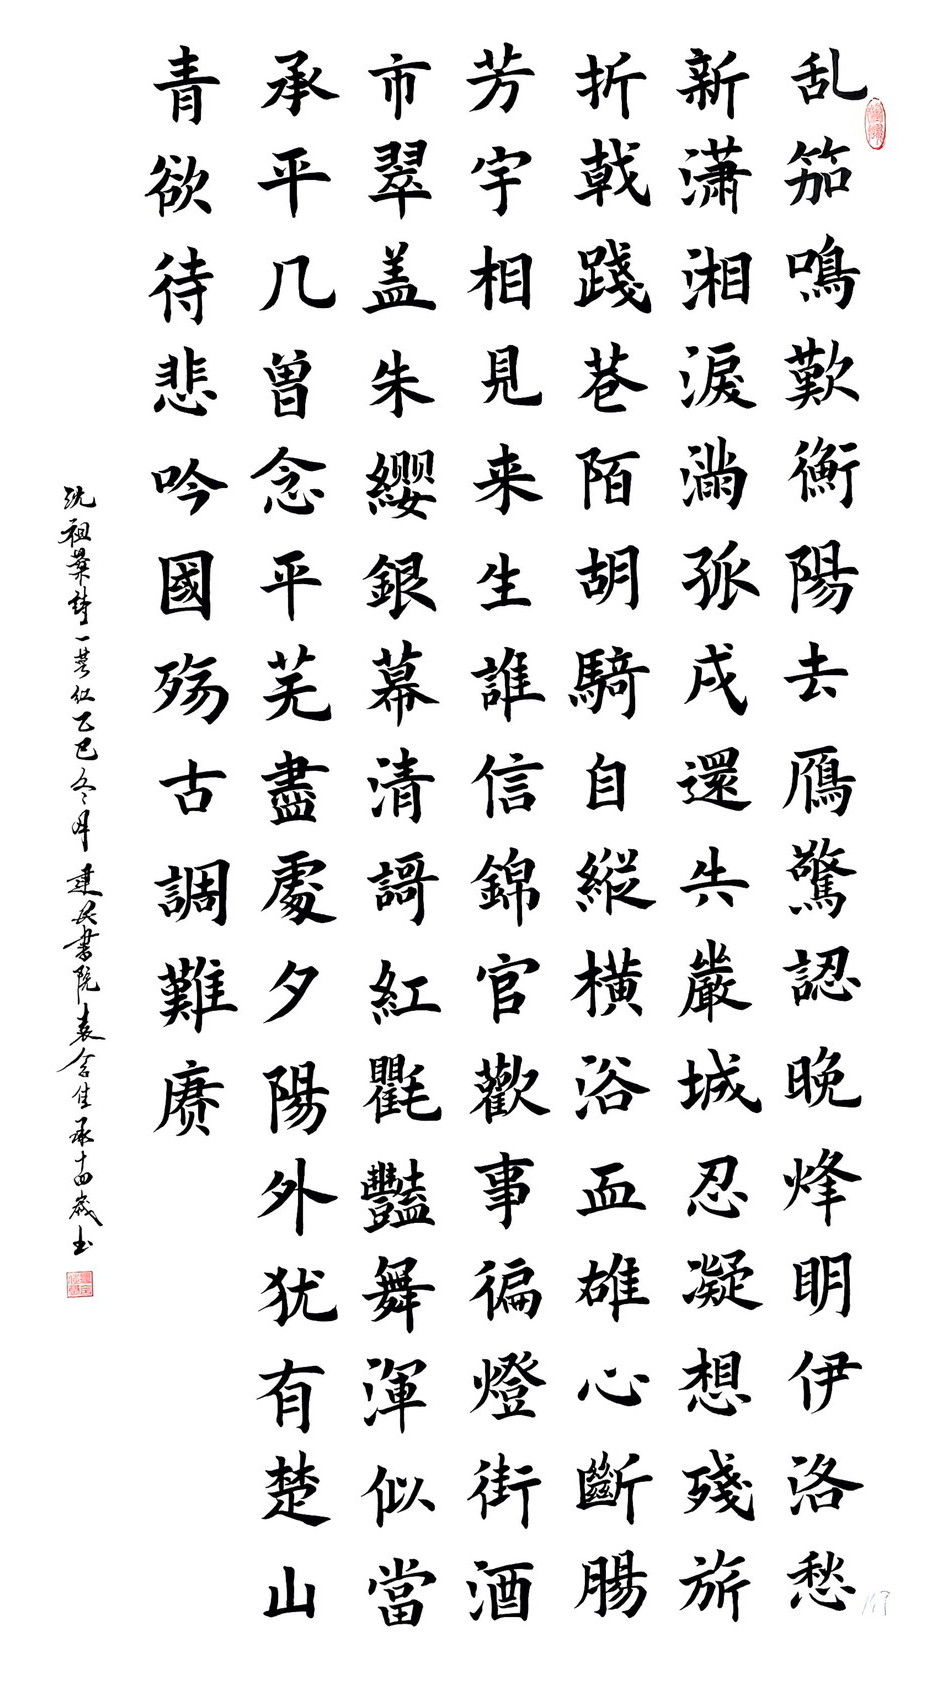 乱笳鳴歎衡陽去雁驚認晚烽明伊洛愁
新瀟湘淚滿孤戍還共嚴城忍凝想殘旅
折戟踐巷陌胡騎自縱橫浴血雄心斷腸
芳字相見来生誰信錦官歡事徧燈街酒
市翠盖朱纓銀幕清謌紅氍豔舞渾似當
承平几曾念平芜盡處夕陽外犹有楚山
青欲待悲吟國殇古調難赓
沈祖棻詩一首仁乙巳冬月建長書院袁含佳承十四歲书